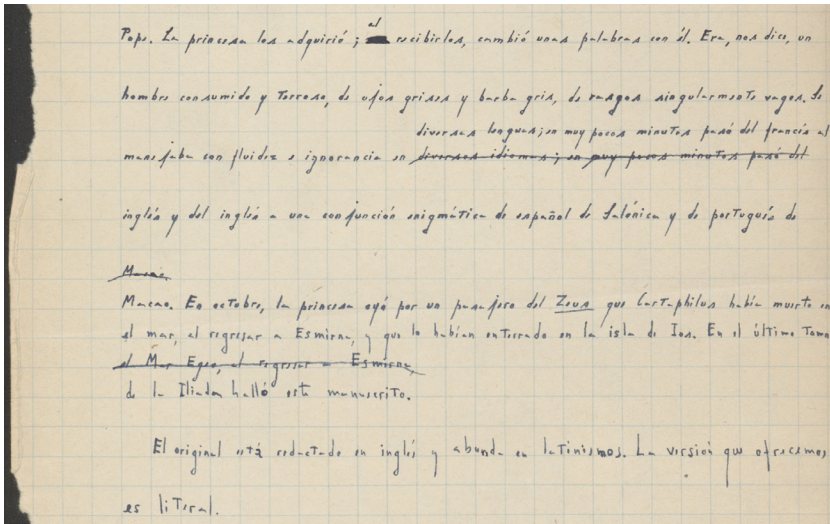 Pope. La princesa los adquirió; al recibirlos, cambió unas palabras con él. Era, nos dice, un
hombre consumido y terroso, de ojos grises y barba gris, de rasgos singularmente vagos. Se
diversas lenguas; en muy pocos minutos pasó del francés al
manejaba con fluidez e ignorancia en diversos idiomas; en muy pocos minutos pasó del
inglés y del inglés a una conjunción enigmática de español de Salónica y de portugués de
Macao.
Macao. En octubre, la princesa oyó por un pasajero del Zeus que Cartaphilus había muerto en
el mar, al regresar a Esmirna, y que lo habían enterrado en la isla de Ios. En el último tomo
el Mar Egeo, al regresar a Esmirna,
de la Ilíada halló este manuscrito.
El original está redactado en inglés y abunda en latinismos. La versión que ofrecemos
es literal.